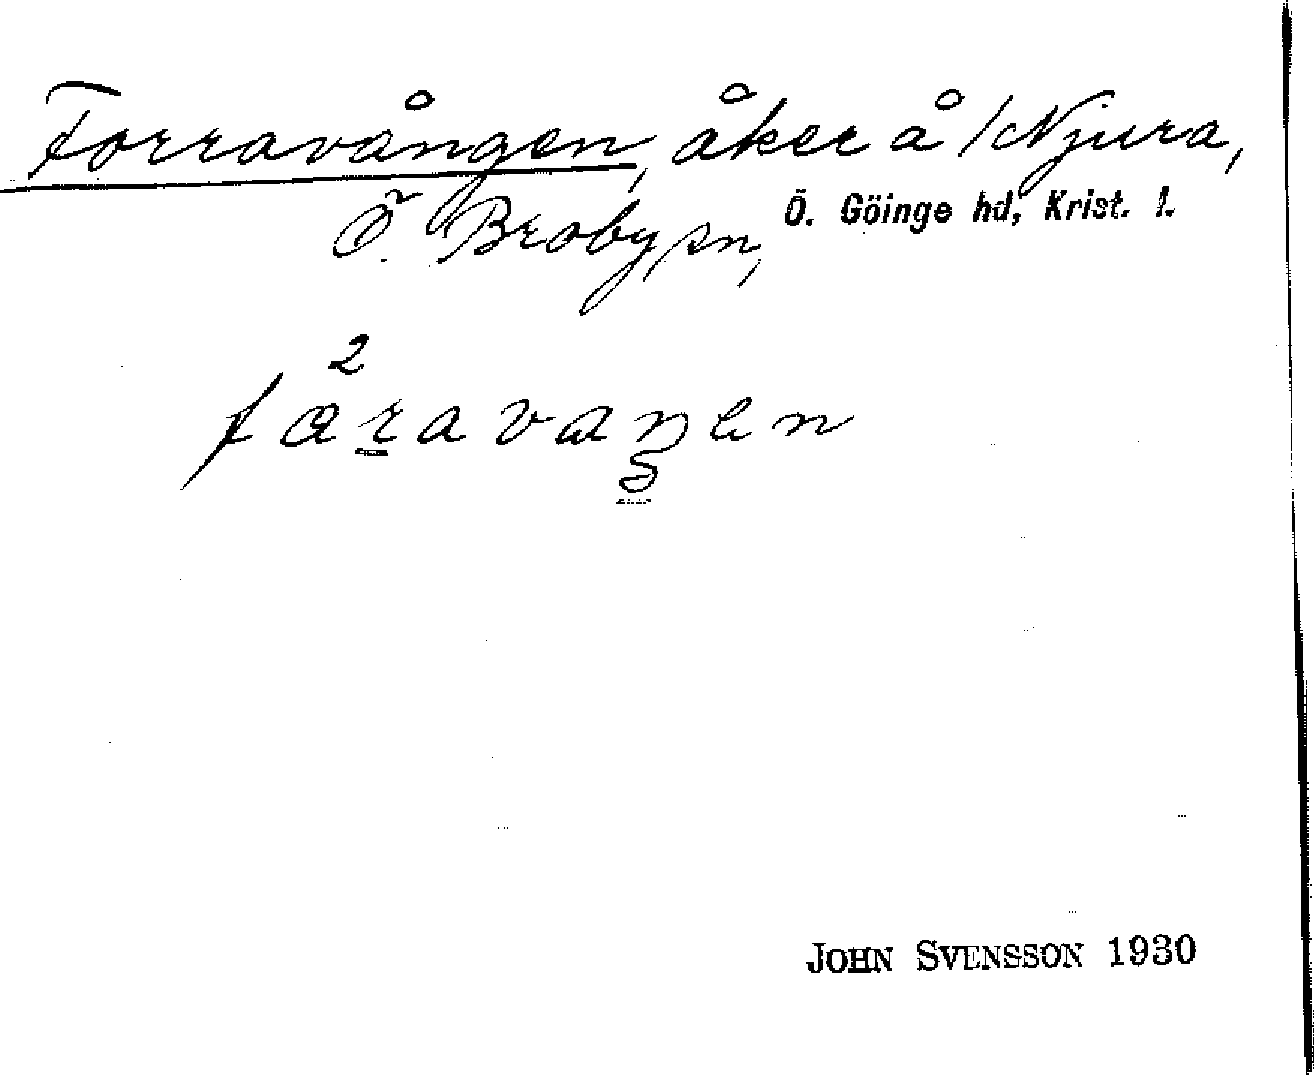 Forravången, åker å Njura,
Ö. Broby sn, Ö. Göinge hd, Krist. l.
2
JOHN SVENSSON 1930